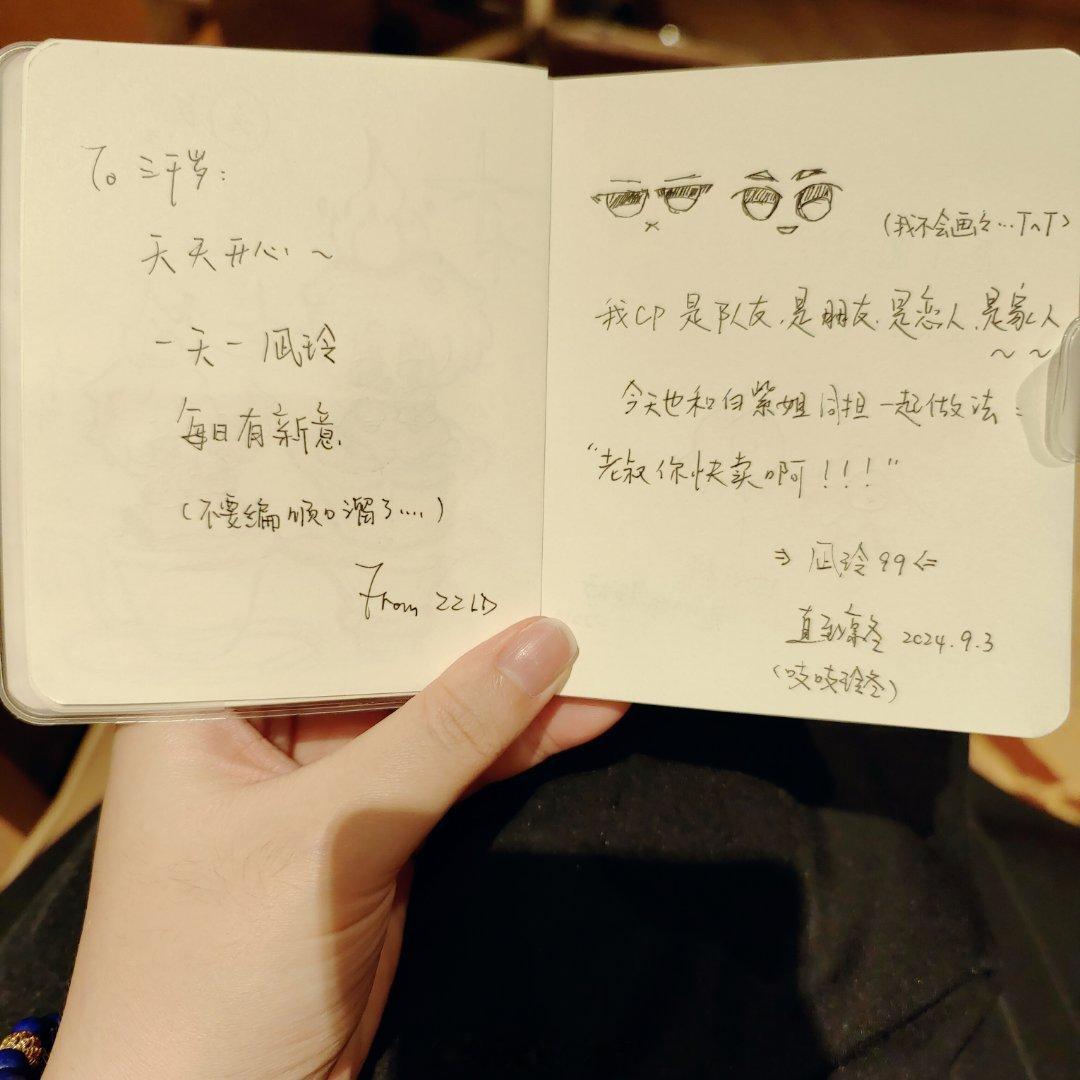 To 三千岁：
天天开心~
一天一凪玲
每日有新意
（不要编顺口溜了....）
From ZZLD
（我不会画文...T^T）
我CP是队友，是朋友，是恋人，是家人
~ ~
今天也和白紫姐同担一起做法：
“老叔你快卖啊！！！”
⇒ 凪玲99 ⇐
直到凛冬 2024.9.3
（吱吱玲冬）